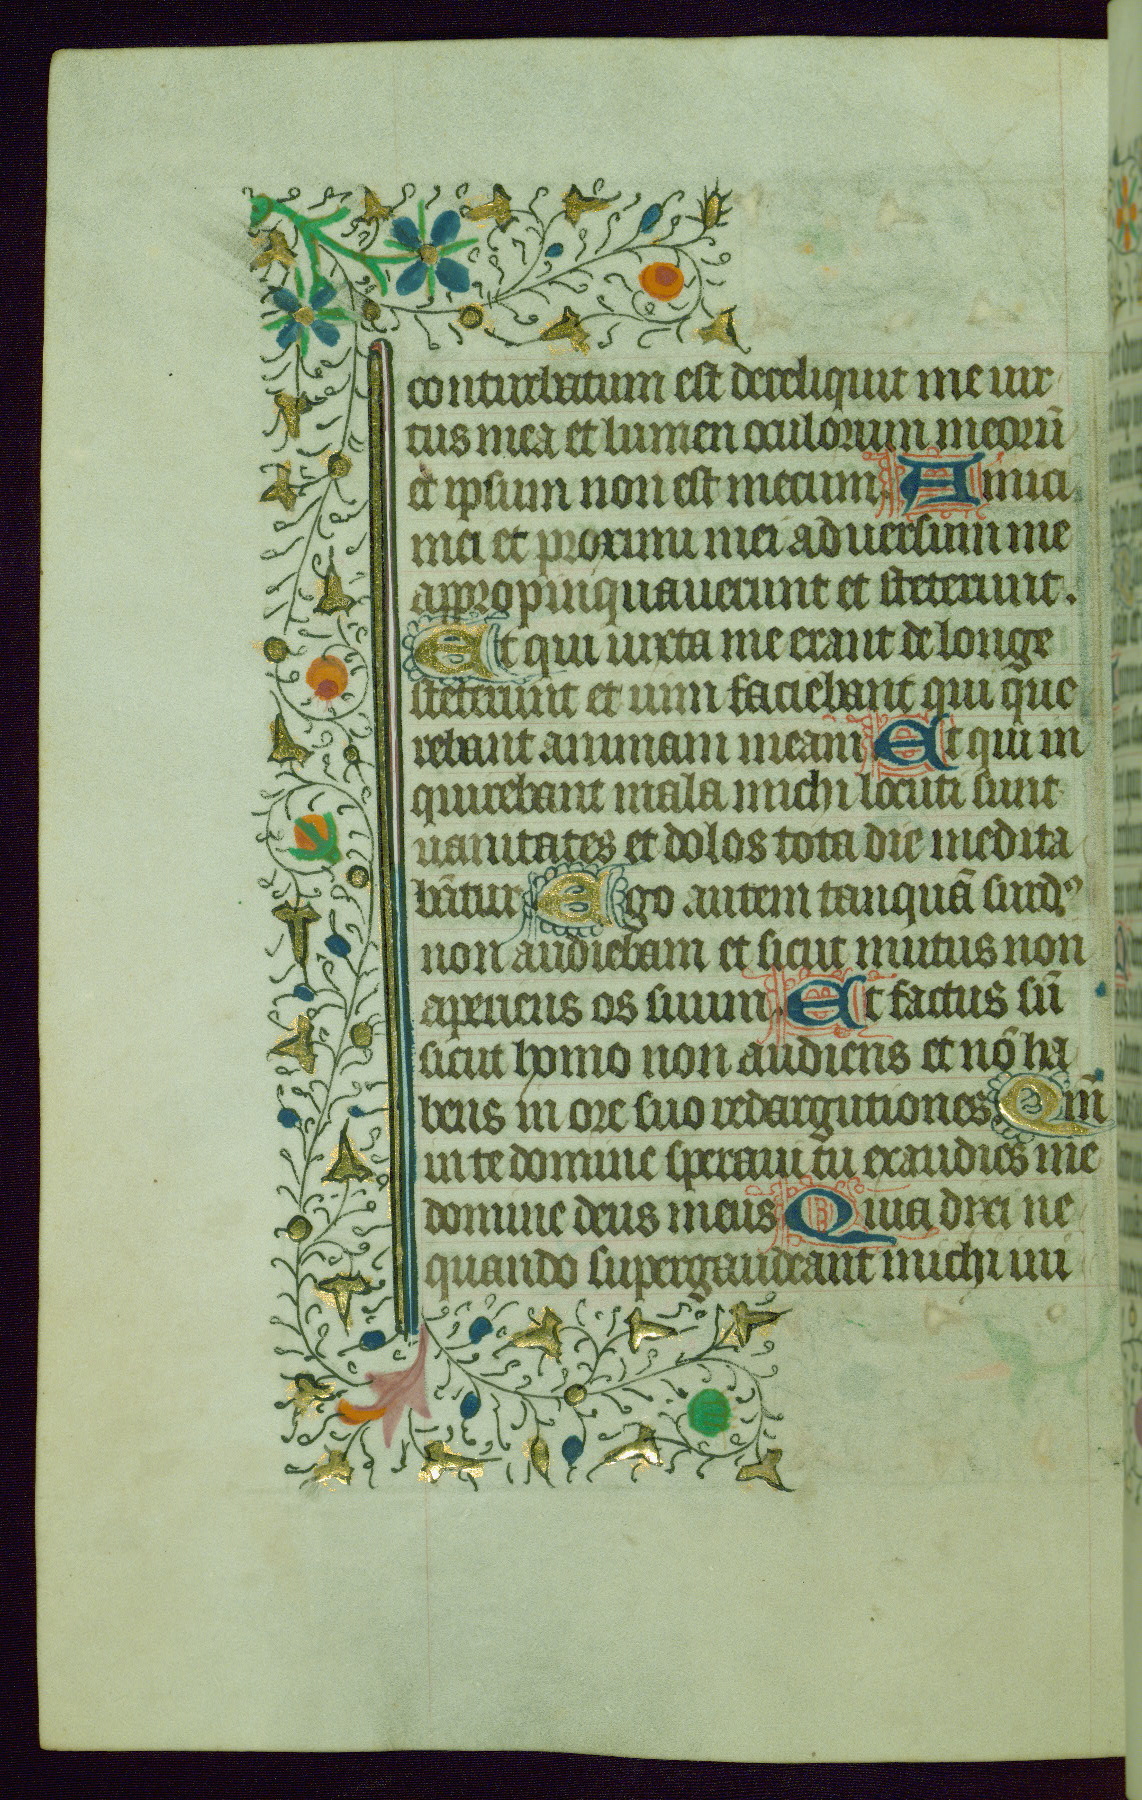 conturbatum est dereliquit me uir
tus mea et lumen oculorum meorū
et ipsum non est mecum. Amici
mei et proximi mei aduersum me
appropinquauerunt et steterunt.
Et qui iuxta me erant de longe
steterunt et uim faciebant qui que
rebant animam meam Et qui in
quirebant mala michi locuti sunt
uanitates et dolos tota die medita
bātur Ego autem tanquā surdꝰ
non audiebam et sicut mutus non
aperiens os suum. Et factus sū
sicut homo non audiens et nō ha
bens in ore suo redargutiones. Qm̄
in te domine speraui tu exaudies me
domine deus meus Quia dixi ne
quando supergaudeant michi ini